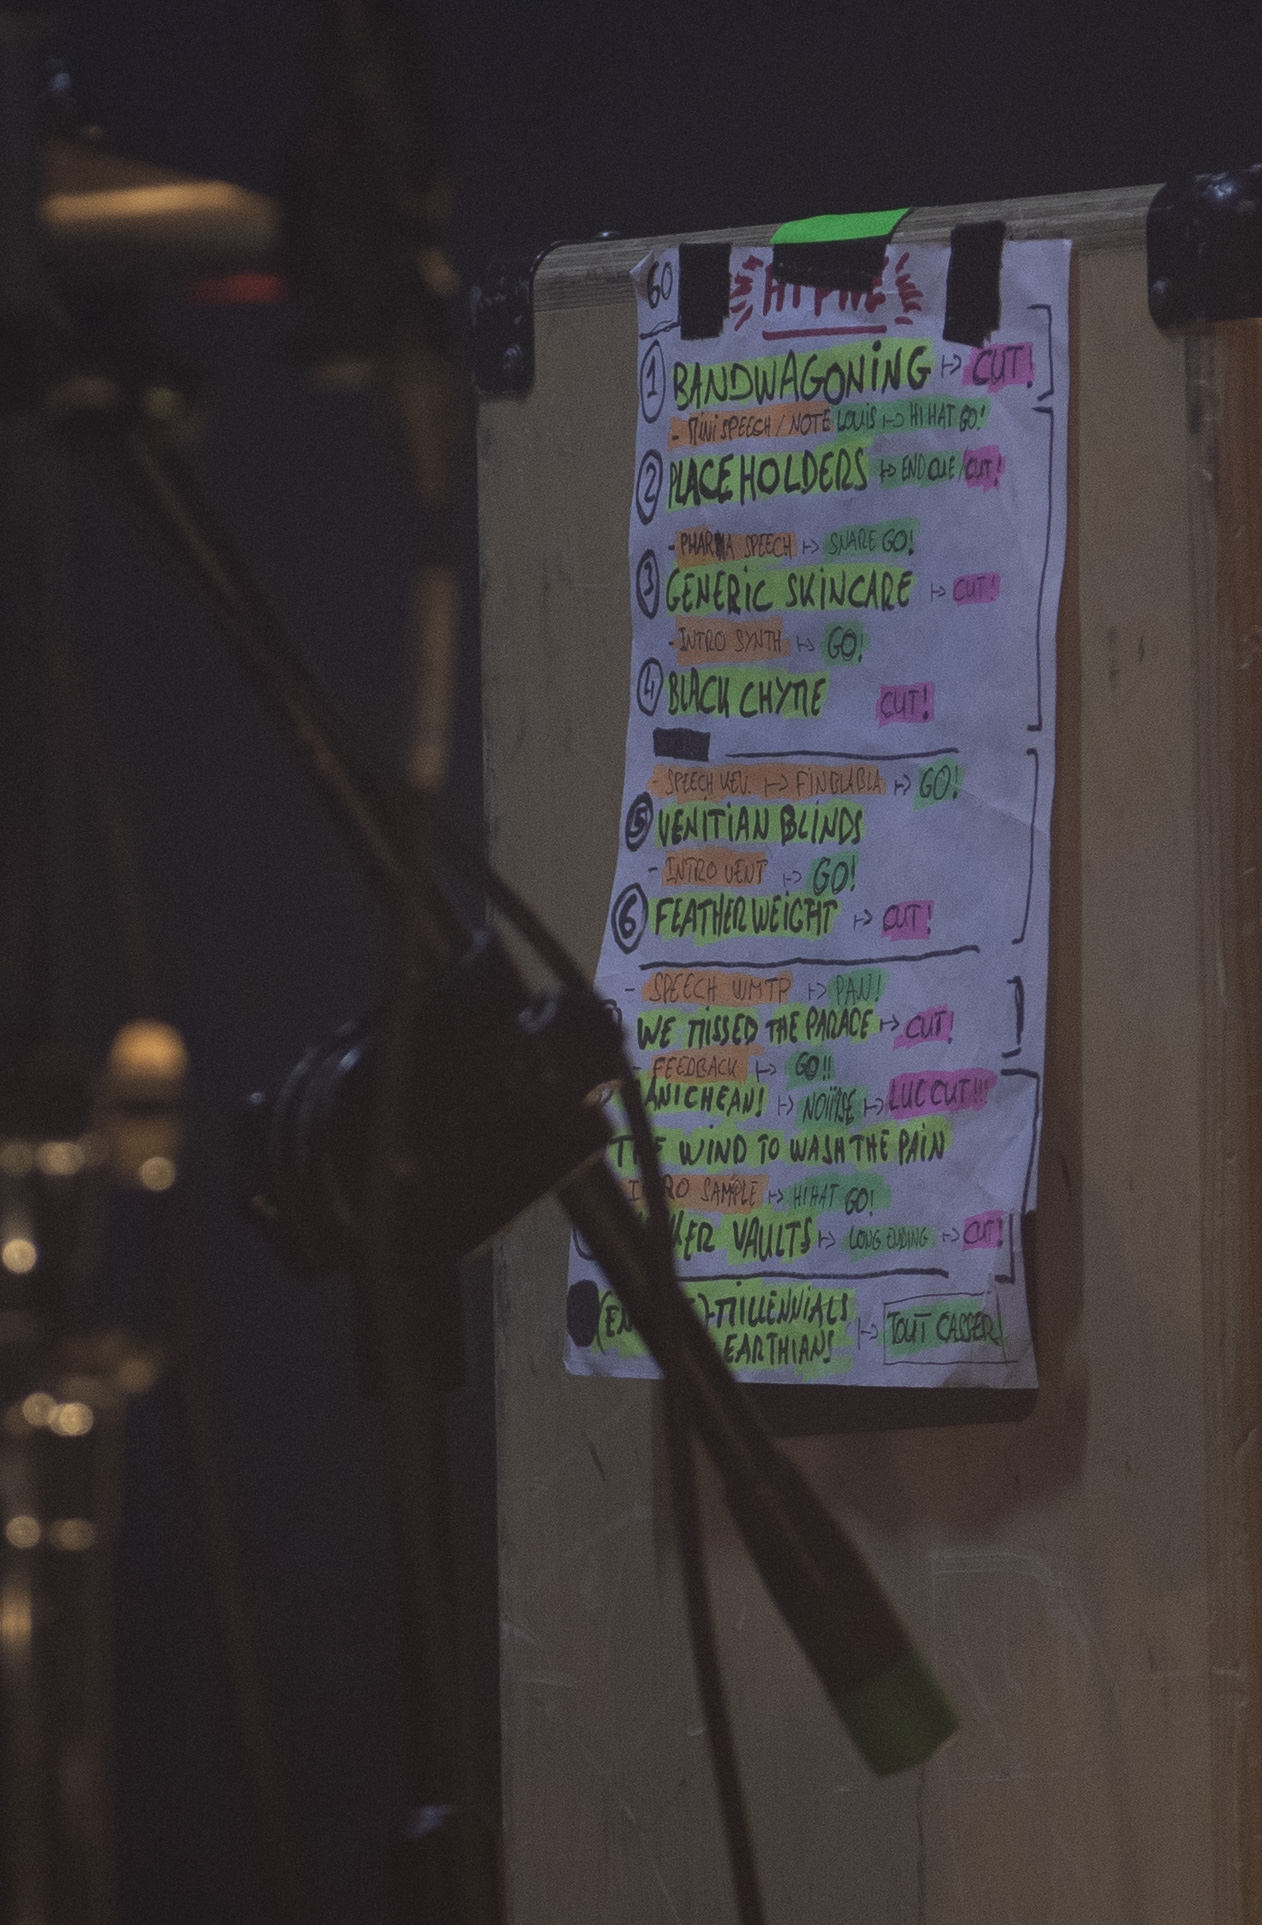 60
① BANDWAGONING ↦ CUT!
- MINI SPEECH / NOTE LOUIS ↦ HI HAT GO!
② PLACEHOLDERS ↦ END CUE / CUT!
- PHARMA SPEECH ↦ SNARE GO!
③ GENERIC SKINCARE ↦ CUT!
- INTRO SYNTH ↦ GO!
④ BLACK CHYME CUT!
- SPEECH KEV. ↦ FIN BLABLA ↦ GO!
⑤ VENITIAN BLINDS
- INTRO VENT ↦ GO!
⑥ FEATHERWEIGHT ↦ CUT!
- SPEECH WMTP ↦ PAN!
WE MISSED THE PARADE ↦ CUT!
- FEEDBACK ↦ GO!!
ANICHEAN! ↦ ↦ LUC CUT!!!
THE WIND TO WASH THE PAIN
SAMPLE ↦ HIHAT GO!
KER VAULTS ↦ LONG ENDING ↦ CUT!
)-MILLENNIALS
EARTHIANS ↦ TOUT CASSER